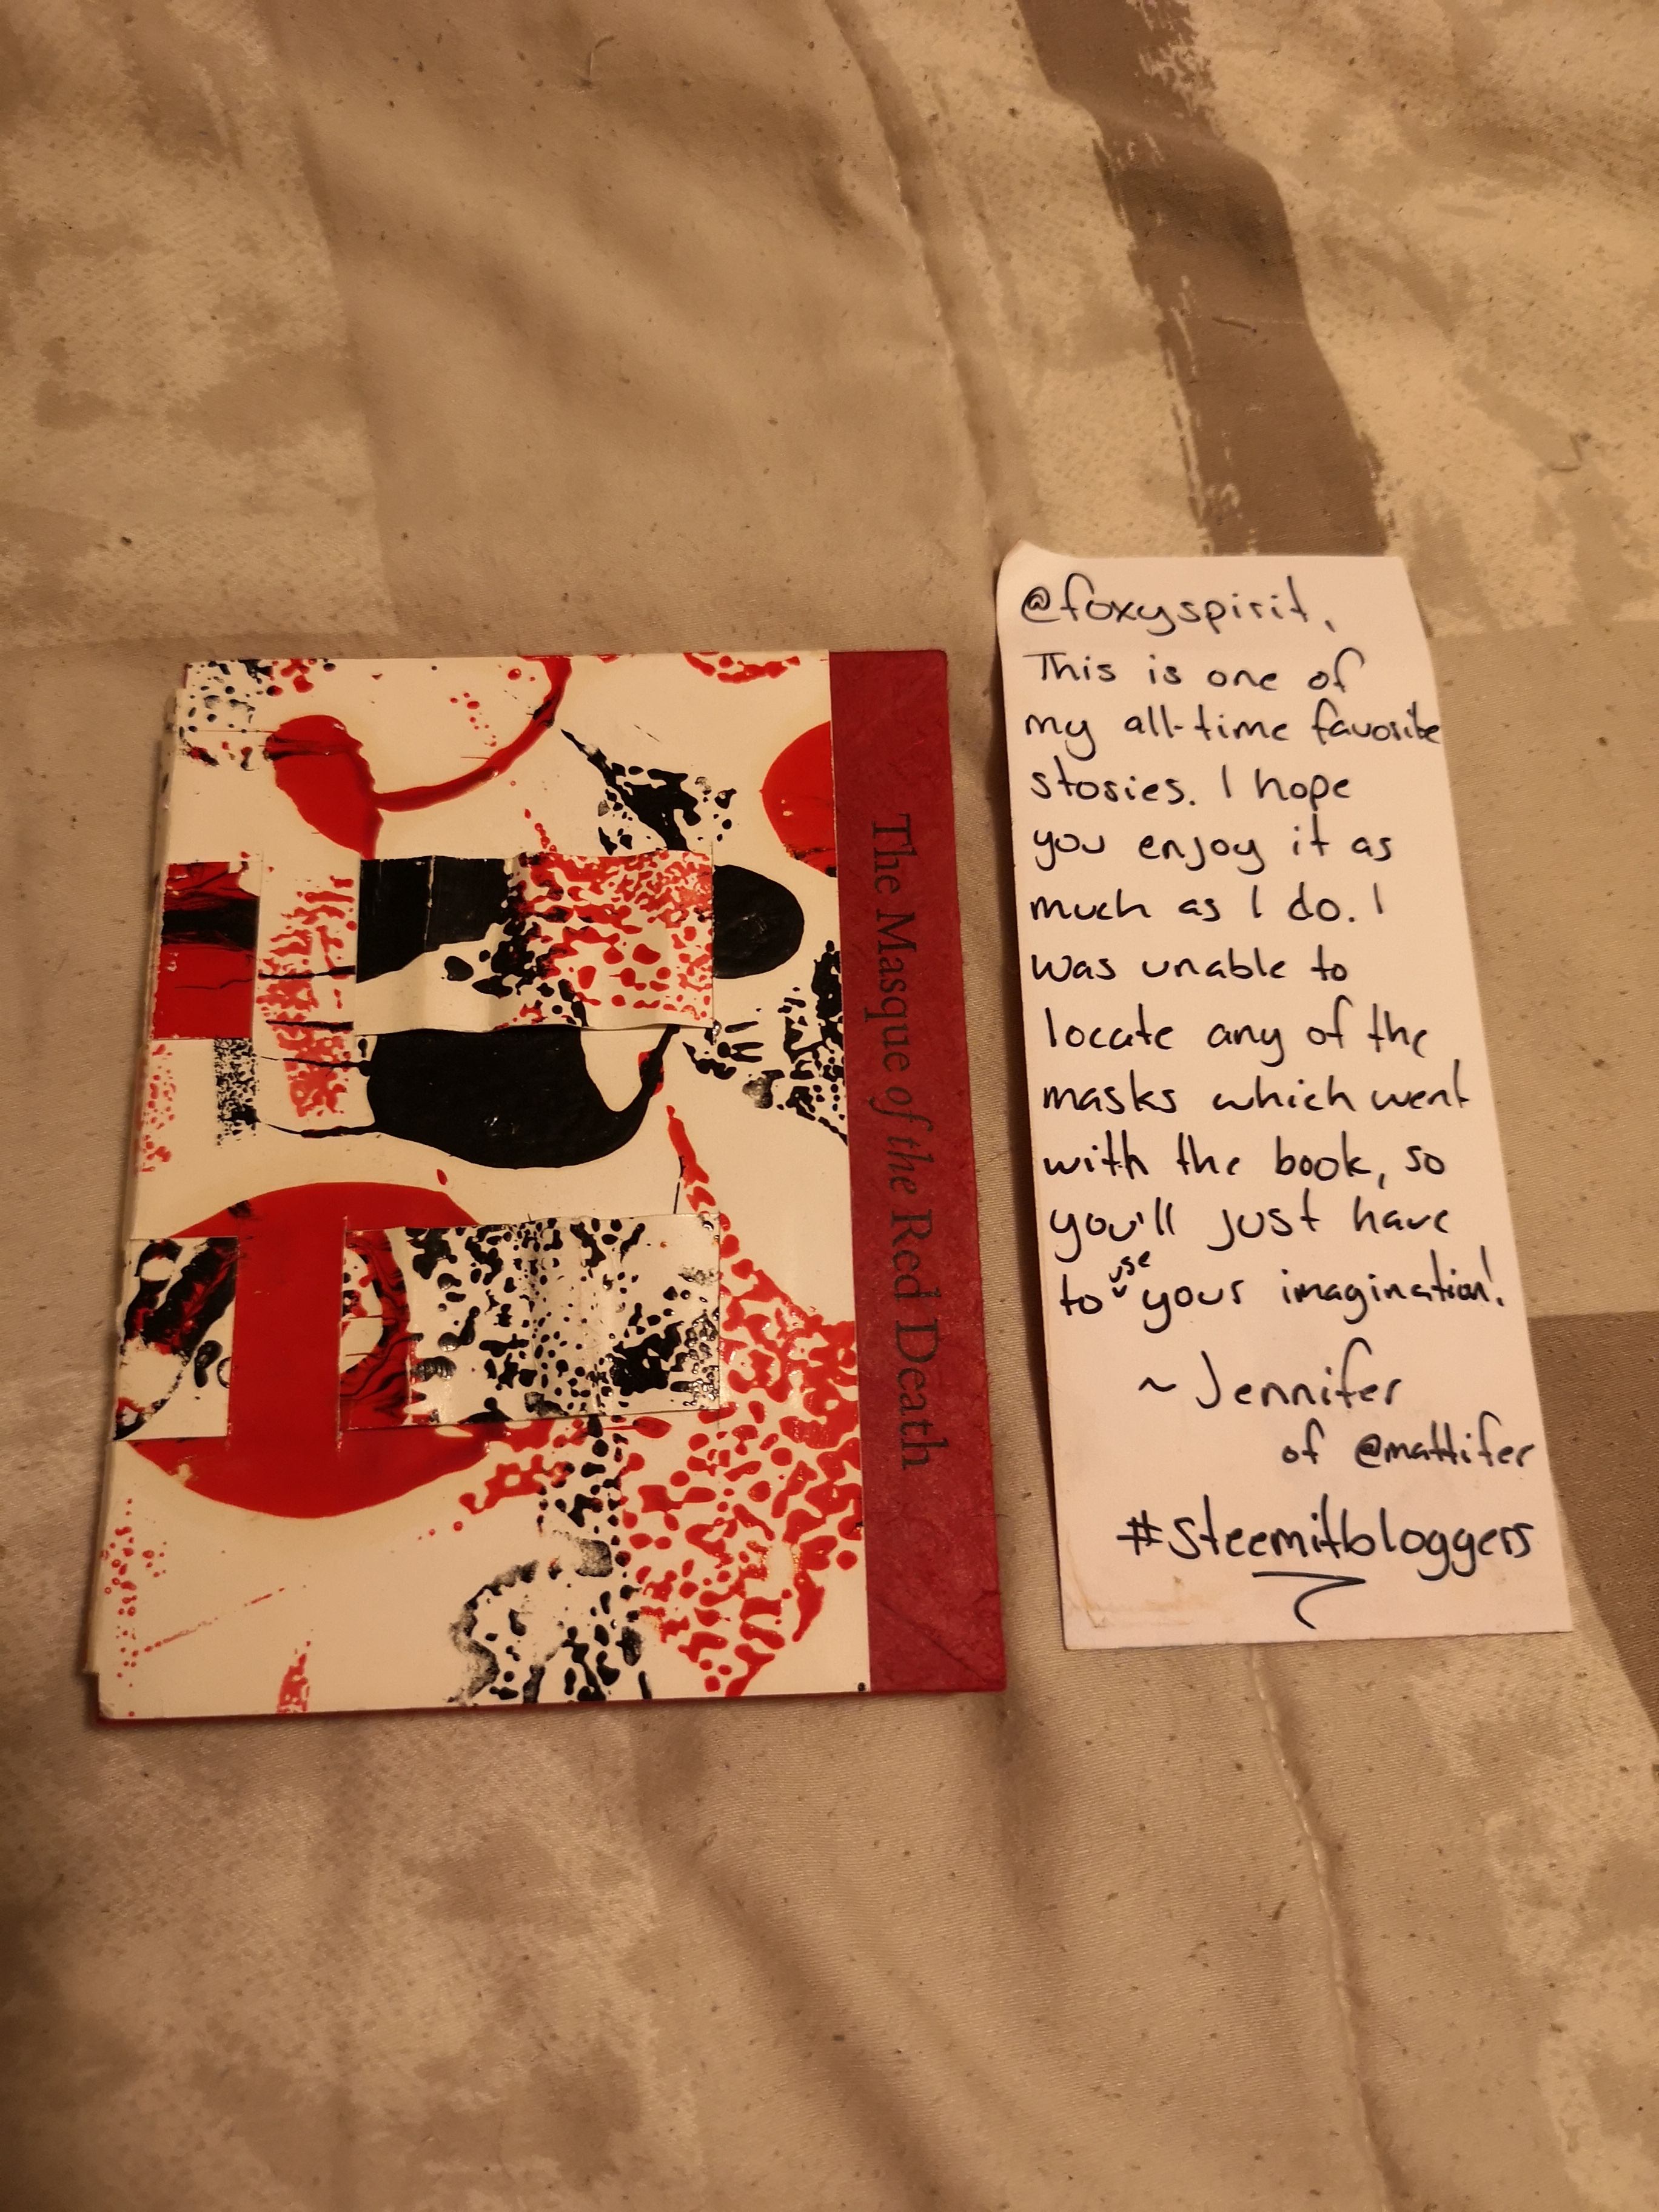 The Masque of the Red Death
@foxyspirit,
This is one of
my all-time favorite
stories. I hope
you enjoy it as
much as I do. I
was unable to
locate any of the
masks which went
with the book, so
you'll just have
to use your imagination!
~Jennifer
of @mattifer
#steemitbloggers